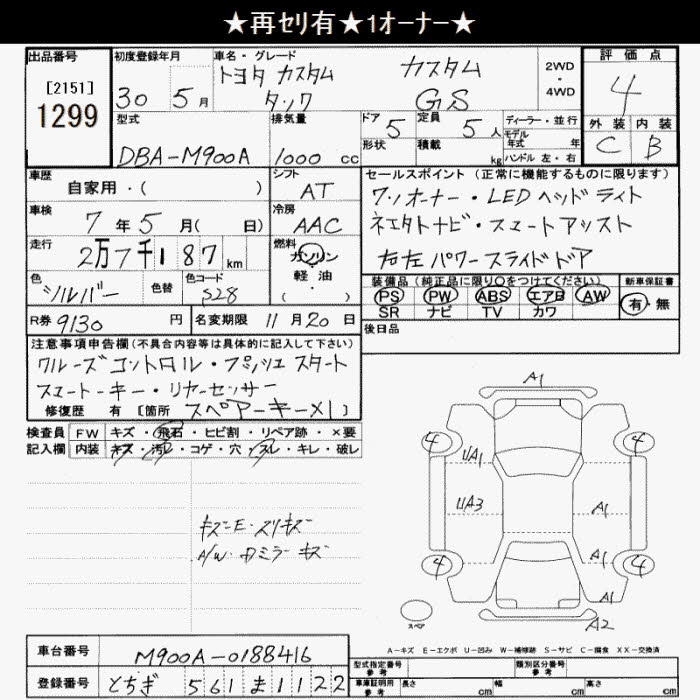 ★再セリ有★1オーナー★
出品番号 初度登録年月 車名・グレード 評価点
[2151] トヨタ カスタム カスタム 2WD・4WD
1299 30 5月 タンク GS 4
型式 排気量 ドア 5 定員 5人 ディーラー・並行 外装 内装
モデル年式 年
DBA-M900A 1000cc 形状 積載 kg ハンドル 左・右 C B
車歴 シフト セールスポイント (正常に機能するものに限ります)
自家用・( ) AT ワンオーナー・LEDヘッドライト
車検 冷房
7年5月( 日) AAC スマートアシスト
走行 燃料
2万7千187km ガソリン 右左パワースライドドア
色 色替 色コード 軽油・( ) 装備品(純正品に限り○をつけてください) 新車保証書
シルバー S28 PS PW ABS エアB AW 有・無
SR ナビ TV カワ
R券 9130円 名変期限 11月20日 後日品
注意事項申告欄(不具合内容等は具体的に記入して下さい)
クルーズコントロル・プッシュスタート
スマートーキー・リヤーセンサー
修復歴 有 [箇所 スペアーキー×1]
検査員 FW キズ・飛石・ヒビ割・リペア跡・×要
記入欄 内装 キズ・汚レ・コゲ・穴・スレ・キレ・破レ
キズーE・スリキズ
A/W・Dミラーキズ
A1
4 4
UA1
UA3 A1
A1
4 4
A1
スペア A2
A-キズ E-エクボ U-凹み W-補修跡 S-サビ C-腐食 XX-交換済
車台番号 M900A-0188416
登録番号 とちぎ 561 ま 1122
型式指定番号 参考 類別区分番号 参考
車庫証明用 参考 長さ cm 幅 cm 高さ cm